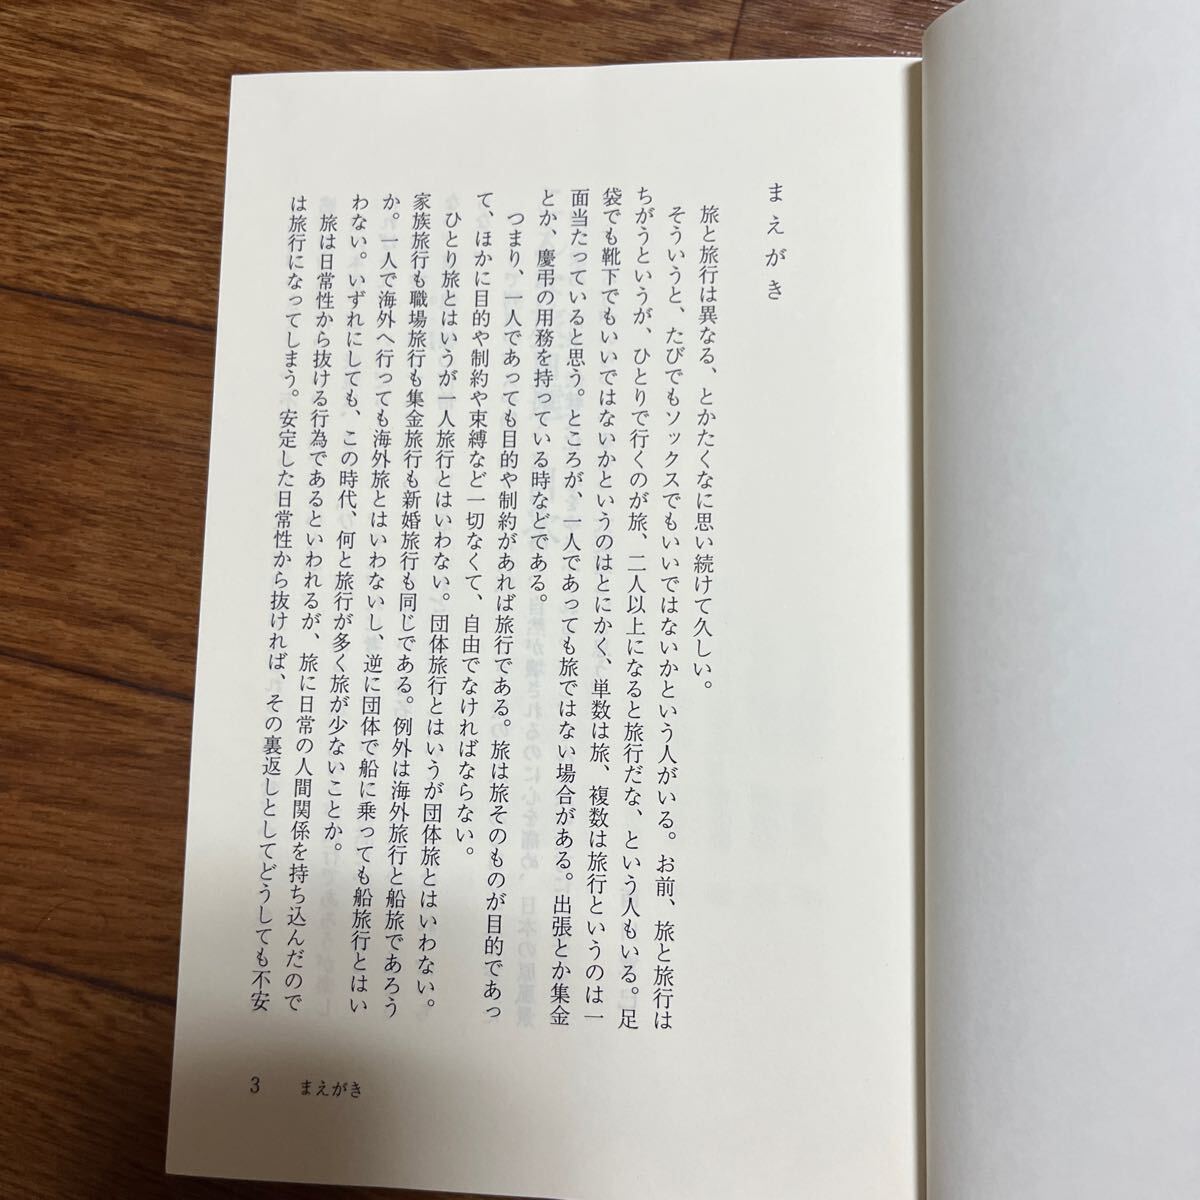 まえがき
旅と旅行は異なる、とかたくなに思い続けて久しい。
そういうと、たびでもソックスでもいいではないかという人がいる。お前、旅と旅行は
ちがうというが、ひとりで行くのが旅、二人以上になると旅行だな、という人もいる。足
袋でも靴下でもいいではないかというのはとにかく、単数は旅、複数は旅行というのは一
面当たっていると思う。ところが、一人であっても旅ではない場合がある。出張とか集金
とか、慶弔の用務を持っている時などである。
つまり、一人であっても目的や制約があれば旅行である。旅は旅そのものが目的であっ
て、ほかに目的や制約や束縛など一切なくて、自由でなければならない。
ひとり旅とはいうが一人旅行とはいわない。団体旅行とはいうが団体旅とはいわない。
家族旅行も職場旅行も集金旅行も新婚旅行も同じである。例外は海外旅行と船旅であろう
か。一人で海外へ行っても海外旅とはいわないし、逆に団体で船に乗っても船旅行とはい
わない。いずれにしても、この時代、何と旅行が多く旅が少ないことか。
旅は日常性から抜ける行為であるといわれるが、旅に日常の人間関係を持ち込んだので
は旅行になってしまう。安定した日常性から抜ければ、その裏返しとしてどうしても不安
3 まえがき